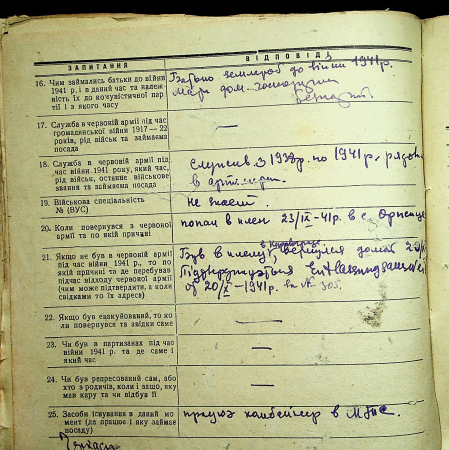 ЗАПИТАННЯ
ВІДПОВІДІ
16. Чим займались батьки до війни
1941 р. і в даний час та належ-
ність їх до комуністичної пар-
тії і з якого часу
Батько землероб до війни 1941р.
Мати дом.
17. Служба в червоній армії під час
громадянської війни 1917—22
років, рід військ та займаєма
посада
—
18. Служба в червоній армії під
час війни 1941 року, який час,
рід військ, останнє військове
звання та займаєма посада
Служив з 1939р. по 1941р. рядов.
в
19. Військова спеціальність
№ (ВУС)
Не
20. Коли повернувся з червоної
армії та по якій причині
попав в плен 23/ІХ-41р. в с.
21. Якщо не був в червоній армії
під час війни 1941 р., то по
якій причині та де перебував
під час відходу червоної армії
(чим може підтвердити, а коли
свідками то їх адреса)
Був в плену, вернулся домой
Підтверджується Entlassungsschein
от 20/Х-1941р. за № 305.
22. Якщо був евакуйований, то ко-
ли повернувся та звідки саме
—
23. Чи був в партизанах під час
війни 1941 р. та де саме і
який час
—
24. Чи був репресований сам, або
хто з родичів, коли і защо, яку
мав кару та чи відбув її
—
25. Засоби існування в даний мо-
мент (де працює і яку займає
посаду)
працює комбайнер в МТС.